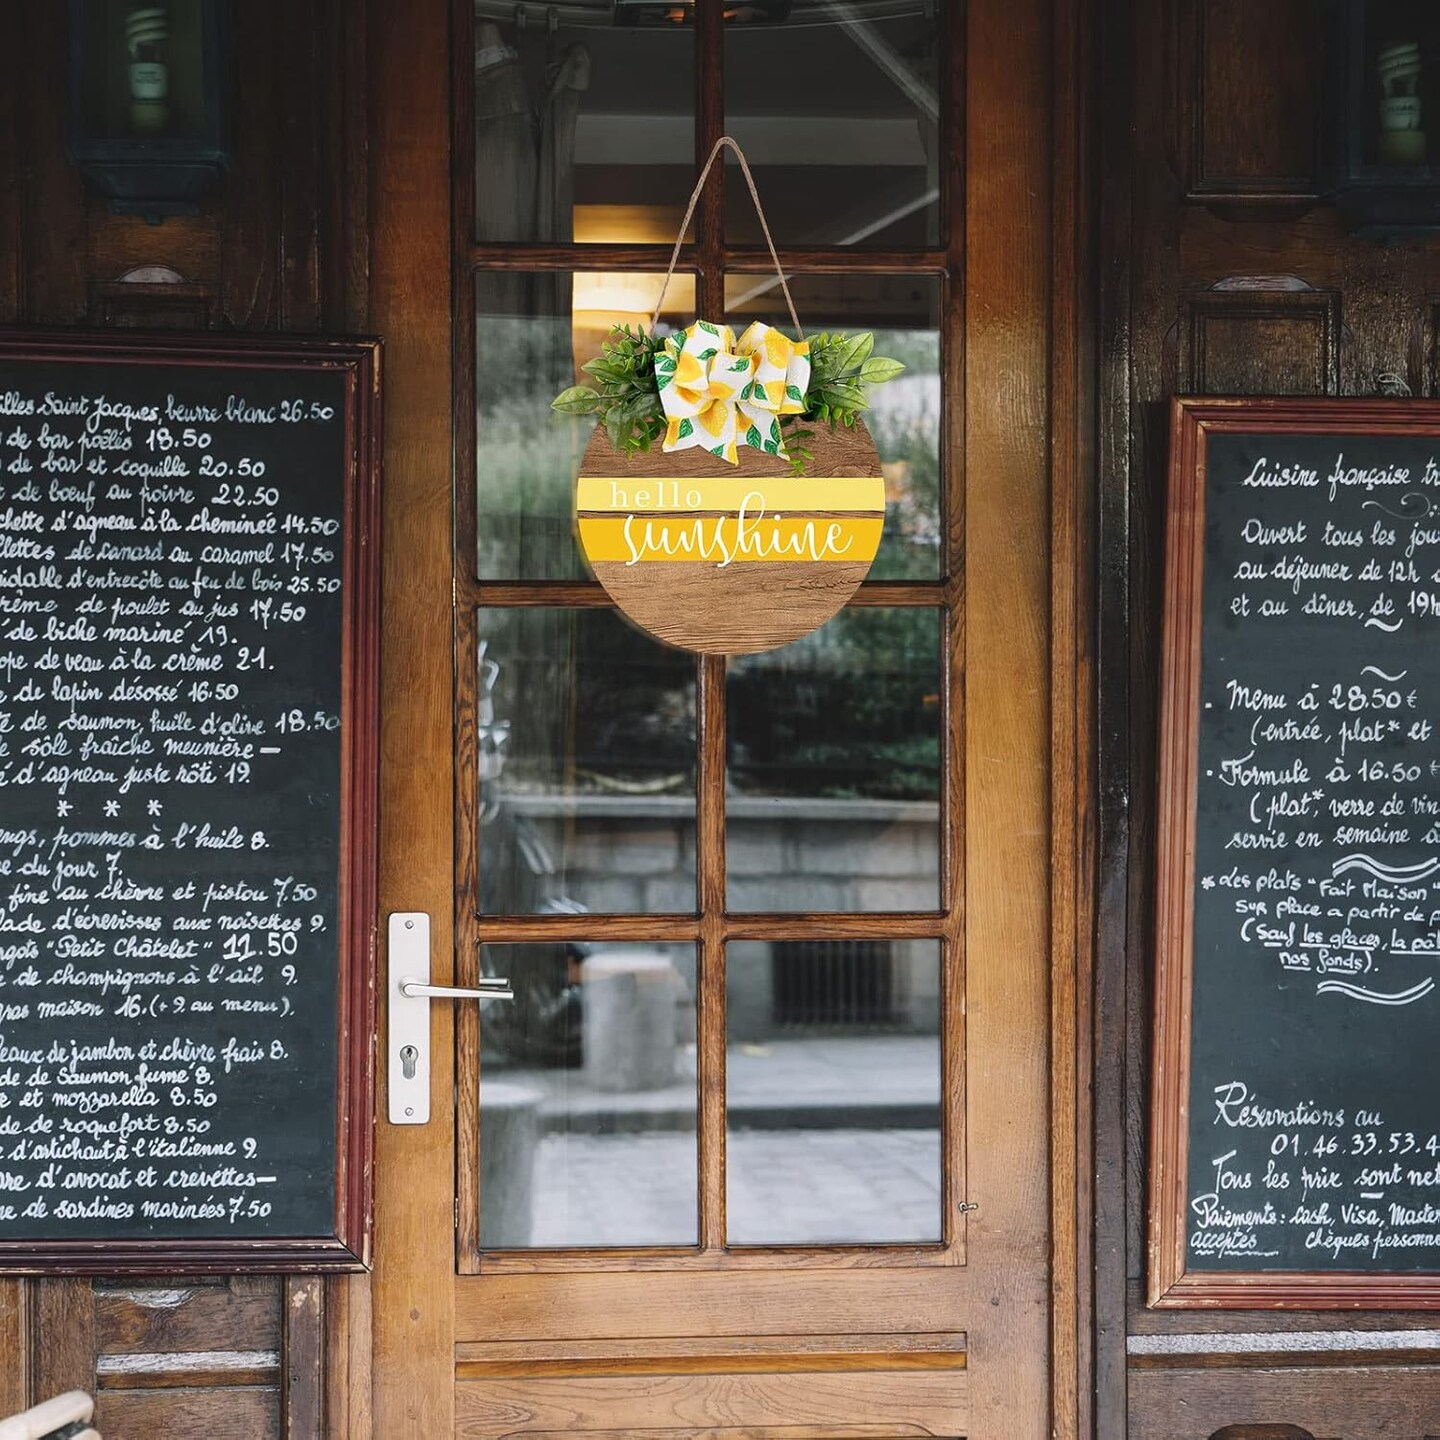 illes Saint Jacques, beurre blanc 26.50
de bar poêlés 18.50
de bar et coquille 20.50
de bœuf au poivre 22.50
chette d'agneau à la cheminée 14.50
lettes de canard au caramel 17.50
idable d'entrecôte au feu de bois 25.50
rême de poulet au jus 17,50
de biche mariné 19.
ope de veau à la crème 21.
de lapin désossé 16.50
de saumon, huile d'olive 18.50
sôle fraîche meunière —
d'agneau juste rôti 19.
* * *
engs, pommes à l'huile 8.
du jour 7.
fine au chèvre et pistou 7.50
lade d'écrevisses aux noisettes 9.
rgots "Petit Châtelet" 11.50
de champignons à l'ail 9.
gras maison 16.(+ 9 au menu).
eaux de jambon et chèvre frais 8.
de de Saumon fumé 8.
e et mozzarella 8.50
de de roquefort 8.50
d'artichaut à l'italienne 9.
are d'avocat et crevettes—
ne de sardines marinées 7.50
hello
sunshine
Cuisine française tr
Ouvert tous les jou
au déjeuner de 12h
et au dîner, de 19h
. Menu à 28.50 €
(entrée, plat* et
. Formule à 16.50 €
(plat*, verre de vin
servie en semaine
* Les plats "Fait Maison"
sur place a partir de
(sauf les glaces, la pât
nos fonds).
Réservations au
01.46.33.53.4
Tous les prix sont net
Paiements: cash, Visa, Master
acceptés chèques personne